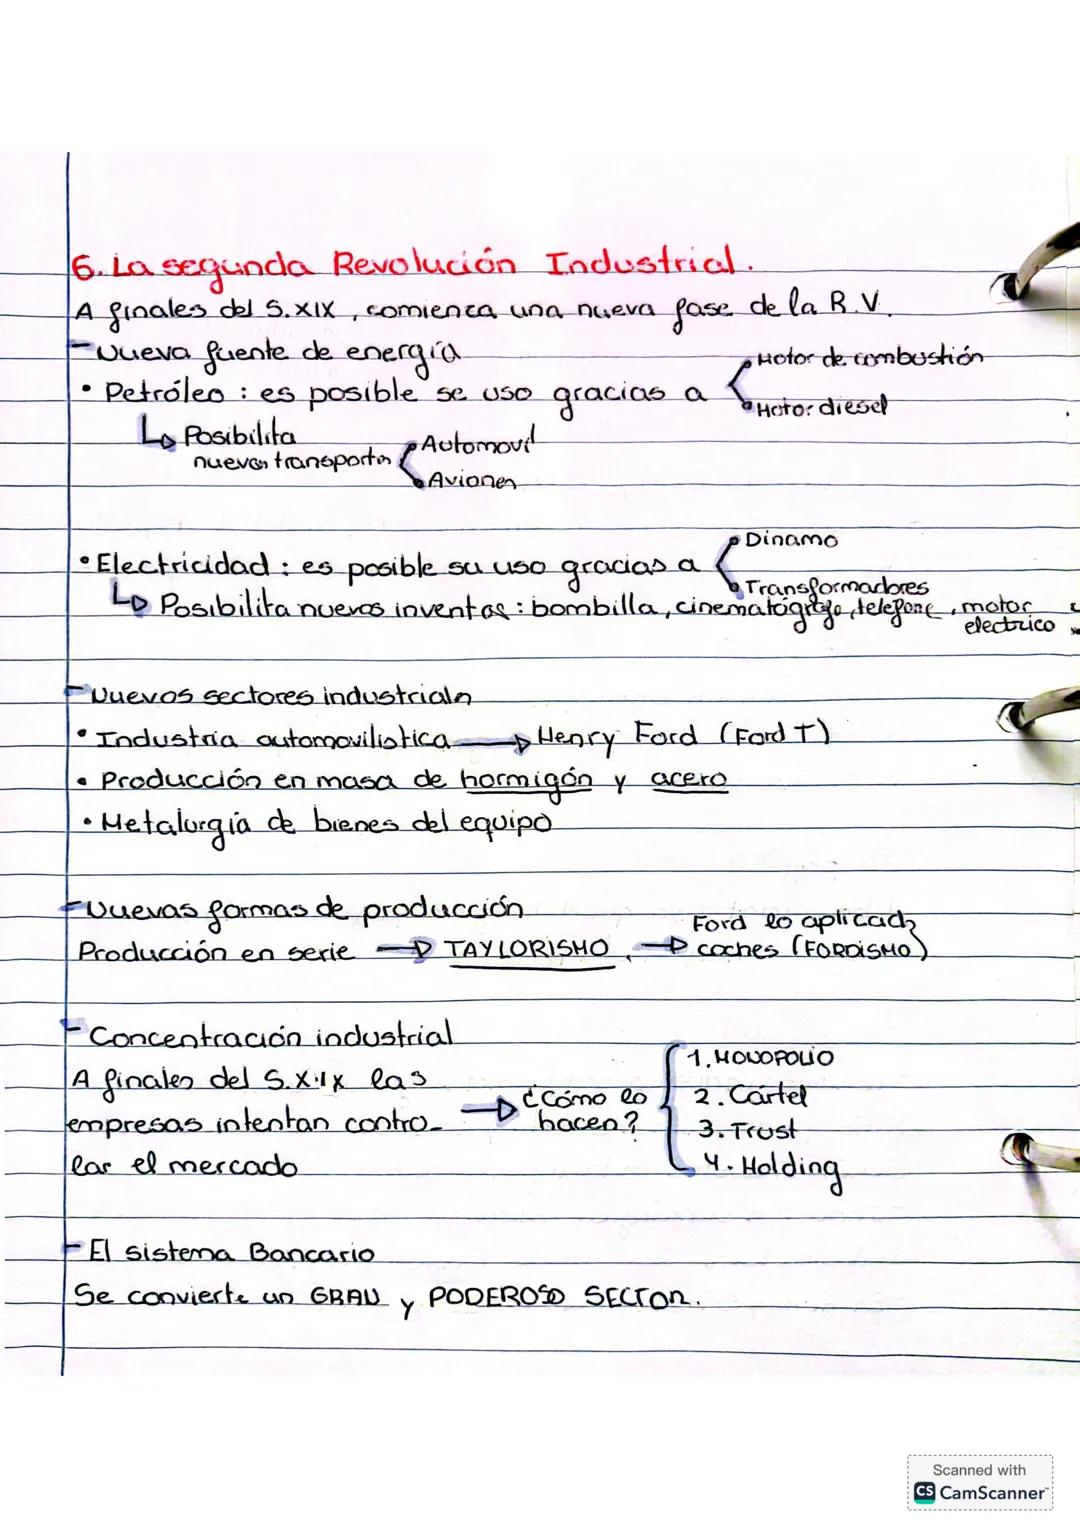 6. La segunda Revolución Industrial.
A finales del S.XIX, comienza una nueva fase de la R.V.
- Nueva fuente de energía
• Petróleo : es posible se uso gracias a
Motor de combustión
Motor diesel
Posibilita
nuevos transportes
Automovil
Aviones
• Electricidad : es posible su uso gracias a
Dinamo
Transformadores
Posibilita nuevos inventos : bombilla, cinematógrafo, telefono, motor
electrico
- Nuevos sectores industriales
• Industria automovilistica → Henry Ford (Ford T)
• Producción en masa de hormigón y acero
• Metalurgia de bienes del equipo
- Nuevas formas de producción
Producción en serie → TAYLORISMO. →
Ford lo aplica
coches (FORDISMO)
- Concentración industrial
A finales del S.XIX las
empresas intentan contro-
lar el mercado
→ ¿Cómo lo
hacen?
1. MONOPOLIO
2. Cártel
3. Trust
4. Holding
- El sistema Bancario
Se convierte un GRAN y PODEROSO SECTOR.
Scanned with
CS CamScanner